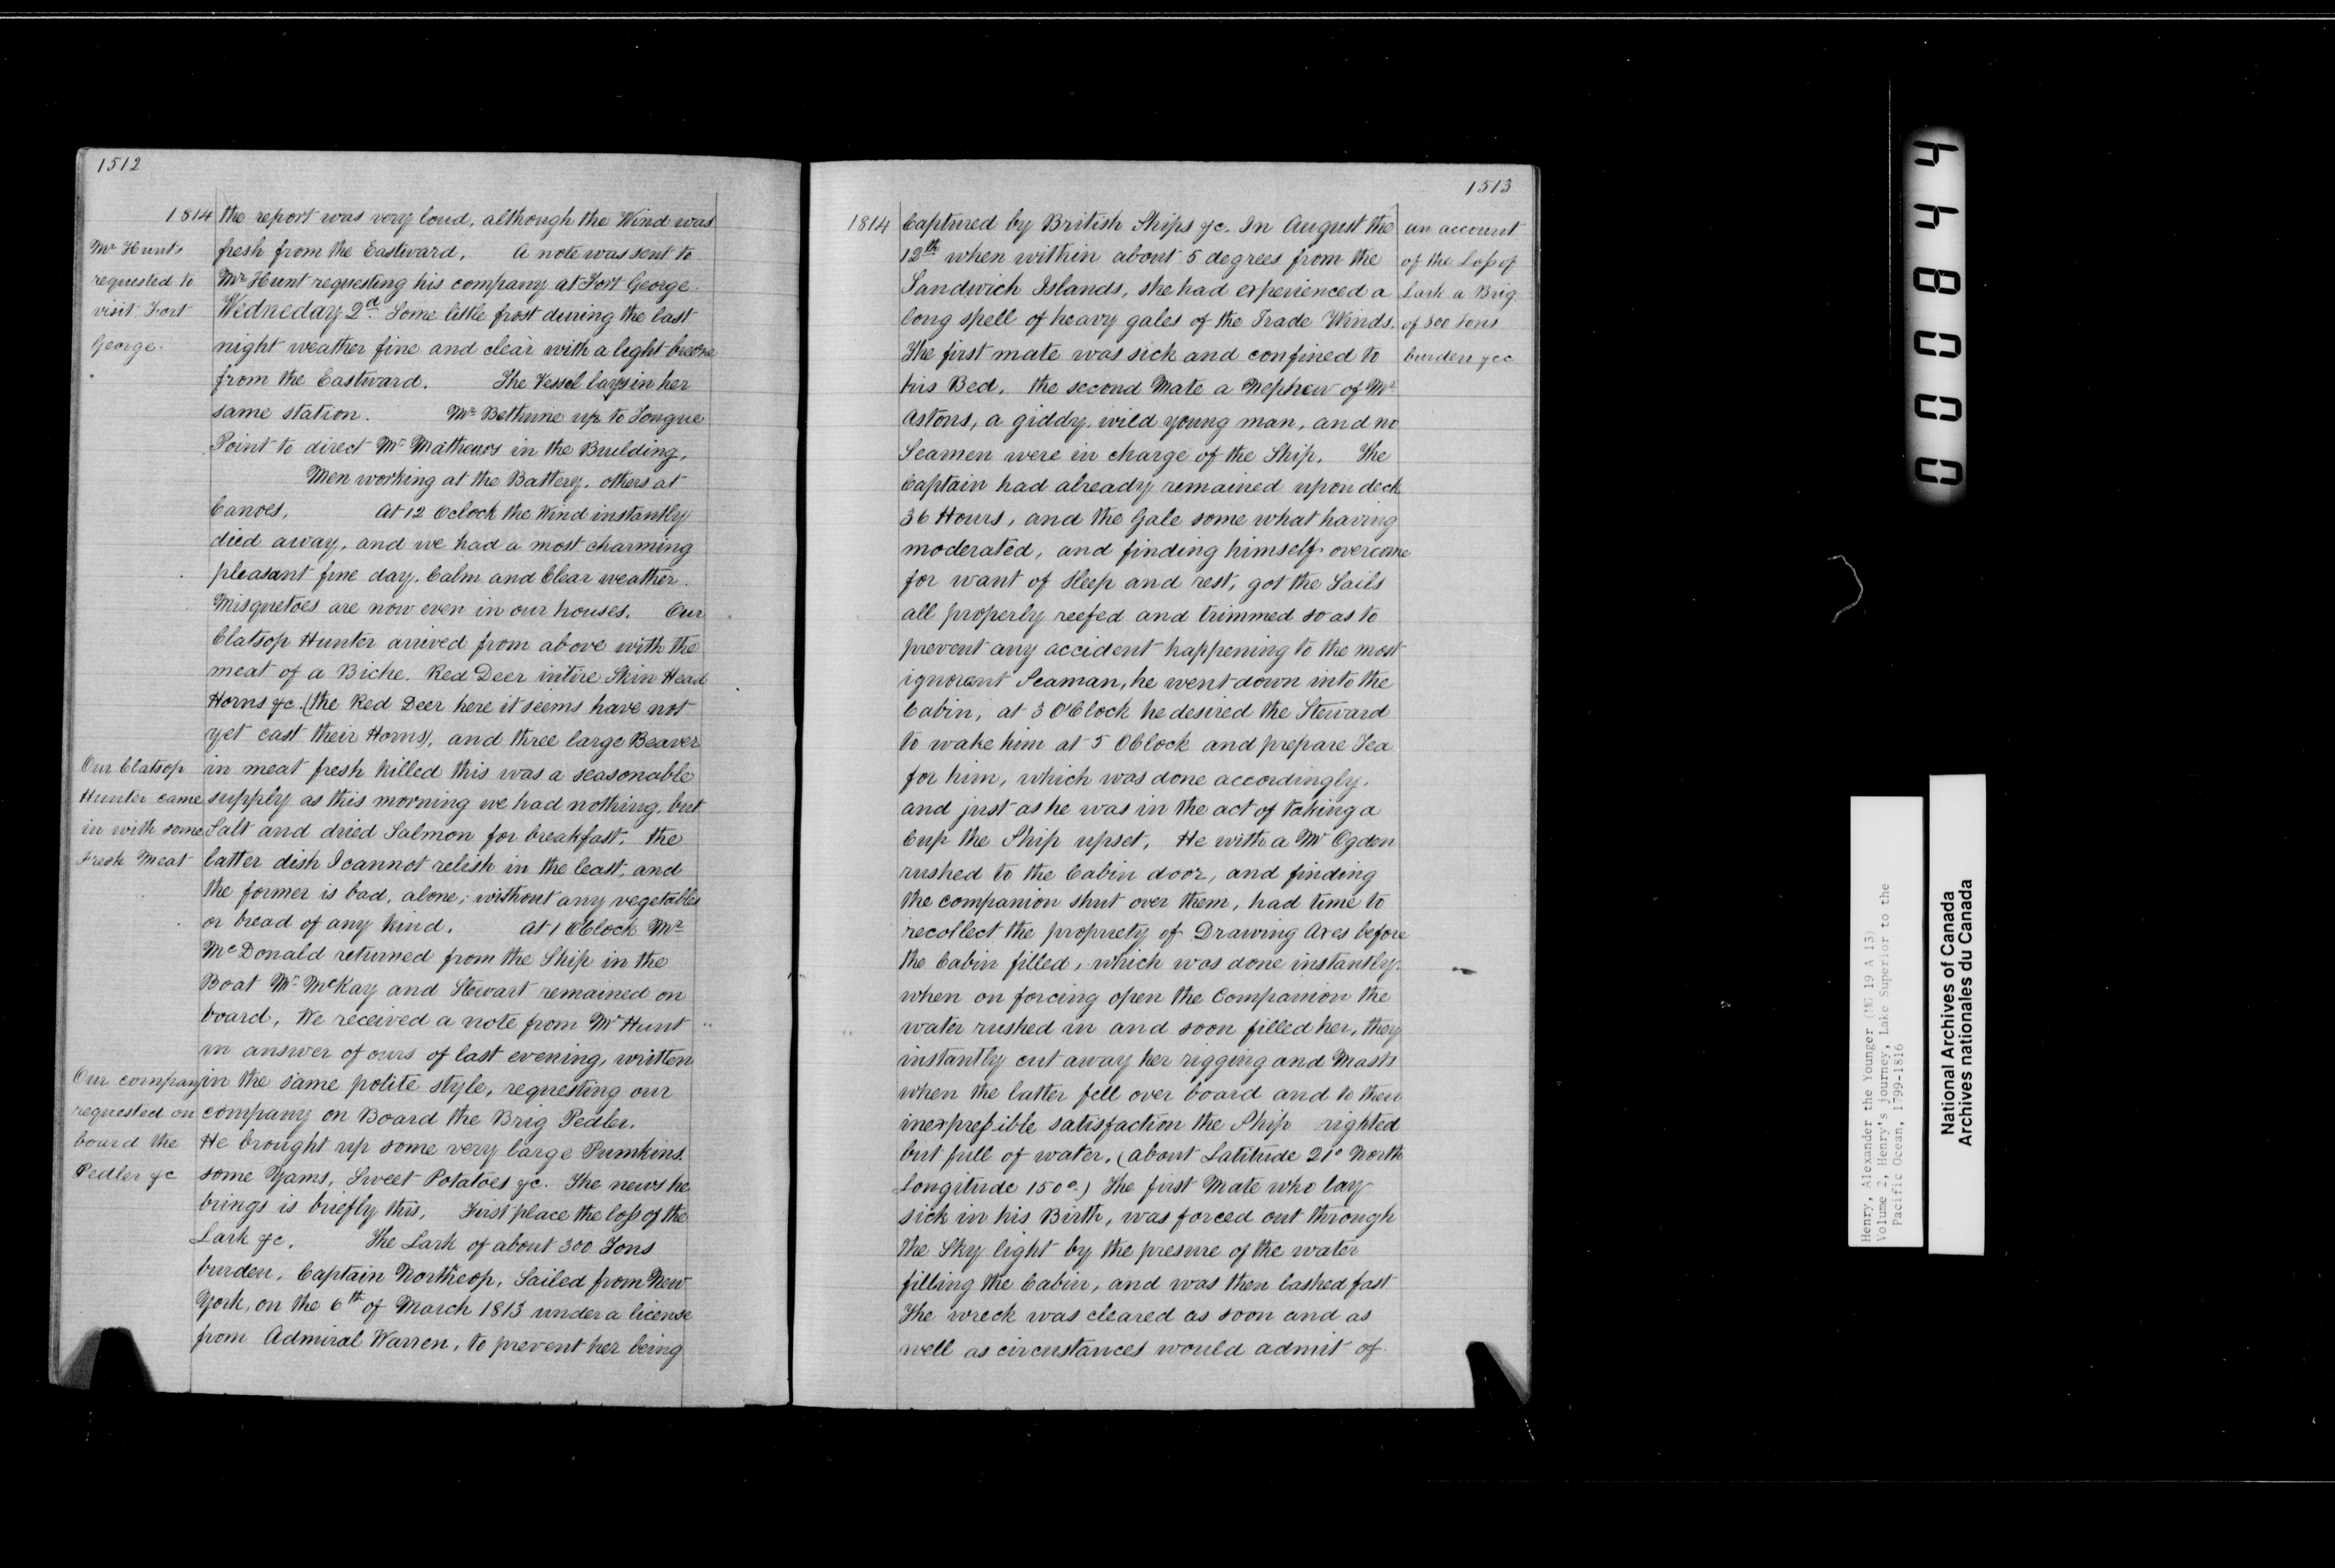 1512
1814 the report was very loud, although the Wind was
Mr Hunts
fresh from the Eastward. A note was sent to
requested to
Mr Hunt requesting his company at Fort George.
visit Fort
Wedneday 2d. Some little frost during the last
George.
night weather fine and clear with a light breeze
from the Eastward. The Vessel lays in her
same station. Mr Bethune up to Tongue
Point to direct Mr Mathews in the Building,
Men working at the Battery, others at
Canoes, At 12 Oclock the Wind instantly
died away, and we had a most charming
pleasant fine day. Calm and Clear weather.
Misquetoes are now even in our houses. Our
Clatsop Hunter arrived from above with the
meat of a Biche. Red Deer intire Skin Head
Horns &c. (the Red Deer here it seems have not
yet cast their Horns), and three large Beaver
Our Clatsop
in meat fresh killed this was a seasonable
Hunter came
supply as this morning we had nothing, but
in with some
Salt and dried Salmon for breakfast, the
Fresh Meat
latter dish I cannot relish in the least, and
the former is bad, alone; without any vegetables
or bread of any kind. At 1 OClock Mr
McDonald returned from the Ship in the
Boat Mr McKay and Stewart remained on
board. We received a note from Mr Hunt
in answer of ours of last evening, written
Our company
in the same polite style, requesting our
requested on
company on Board the Brig Pedler.
board the
He brought up some very large Pumkins.
Pedler &c
some Yams, Sweet Potatoes &c. The news he
brings is briefly this, First place the loss of the
Lark &c. The Lark of about 300 Tons
burden, Captain Northcop, Sailed from New
York, on the 6th of March 1813 under a license
from Admiral Warren, to prevent her being
1513
1814 Captured by British Ships &c. In August the
an account
12th when within about 5 degrees from the
of the Loss of
Sandwich Islands, she had experienced a
Lark a Brig
long spell of heavy gales of the Trade Winds.
of 300 Tons
The first mate was sick and confined to
burden &cc
his Bed, the second Mate a Nephew of Mr
Astons, a giddy wild young man, and no
Seamen were in charge of the Ship. The
Captain had already remained upon deck
36 Hours, and the Gale some what having
moderated, and finding himself overcome
for want of Sleep and rest, got the Sails
all properly reefed and trimmed so as to
prevent any accident happening to the most
ignorant Seaman, he went down into the
Cabin, at 3 O'Clock he desired the Steward
to wake him at 5 OClock and prepare Tea
for him, which was done accordingly,
and just as he was in the act of taking a
Cup the Ship upset, He with a Mr Ogden
rushed to the Cabin door, and finding
the companion shut over them, had time to
recollect the propriety of Drawing Axes before
the Cabin filled, which was done instantly.
when on forcing open the Companion the
water rushed in and soon filled her, they
instantly cut away her rigging and Masts
when the latter fell over board and to their
inexpressible satisfaction the Ship righted
but full of water, (about Latitude 21° North
Longitude 150°.) The first Mate who lay
sick in his Birth, was forced out through
the Sky light by the presure of the water
filling the Cabin, and was then lashed fast
The wreck was cleared as soon and as
well as circustances would admit of
000844
Henry, Alexander the Younger (MG 19 A 13)
Volume 2, Henry's journey, Lake Superior to the
Pacific Ocean, 1799-1816
National Archives of Canada
Archives nationales du Canada